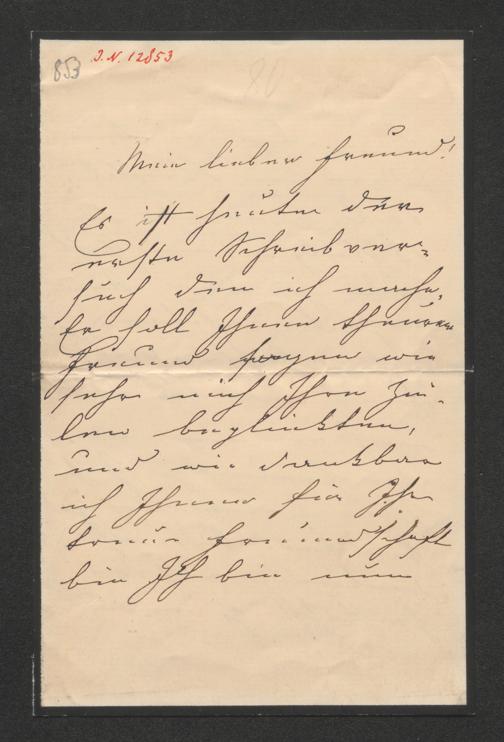 853
I.N. 12853
Mein lieber Freund!
Es ist heute der
erste Schreibver-
such den ich mache,
Er soll Ihnen theurer
Freund sagen wie
sehr mich Ihre Zei-
len beglückten,
und wie dankbar
ich Ihnen für Ihre
treue Freundschaft
bin Ich bin nun